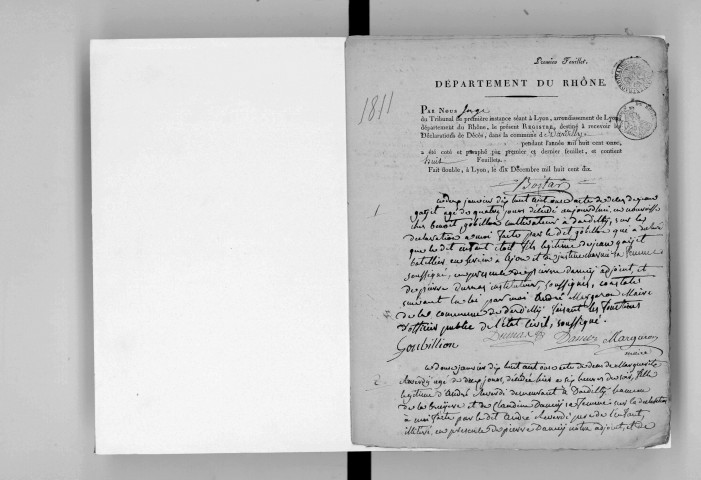 Premier Feuillet.
DÉPARTEMENT DU RHÔNE.
1811
PAR NOUS Juge
du Tribunal de première instance séant à Lyon, arrondissement de Lyon,
département du Rhône, le présent REGISTRE, destiné à recevoir les
Déclarations de Décès, dans la commune de Dardilly
pendant l'année mil huit cent onze,
a été coté et paraphé par premier et dernier feuillet, et contient
huit Feuillets.
Fait double, à Lyon, le dix Décembre mil huit cent dix.
1
janvier dix huit cent onze acte de deces de jean
age de quatre jours décédé aujourdhui en nourrisse
chez benoit gobillon cultivateur a dardilly, sur la
declaration a moi faite par le dit gobillon qui a declaré
que le dit enfant etoit fils legitime de jean
a lyon et de sa femme
soussigné, en presence de pierre damez adjoint, et
de pierre dumas instituteur, soussignés, constaté
suivant la loi par moi André Margaron Maire
de la commune de dardilly faisant les fonctions
d'officier public de l'état civil, soussigné.
Goubillion Dumas Damez Margaron
maire
2
janvier dix huit cent onze acte de deces de Marguerite
age de deux jours, décédée hier a six heures du soir, fille
legitime d'André demeurant à Dardilly hameau
de la bruyere et de Claudine Damez sa femme sur la declaration
à moi faite par le dit André père de l'enfant,
en presence de pierre Damez notre adjoint, et de